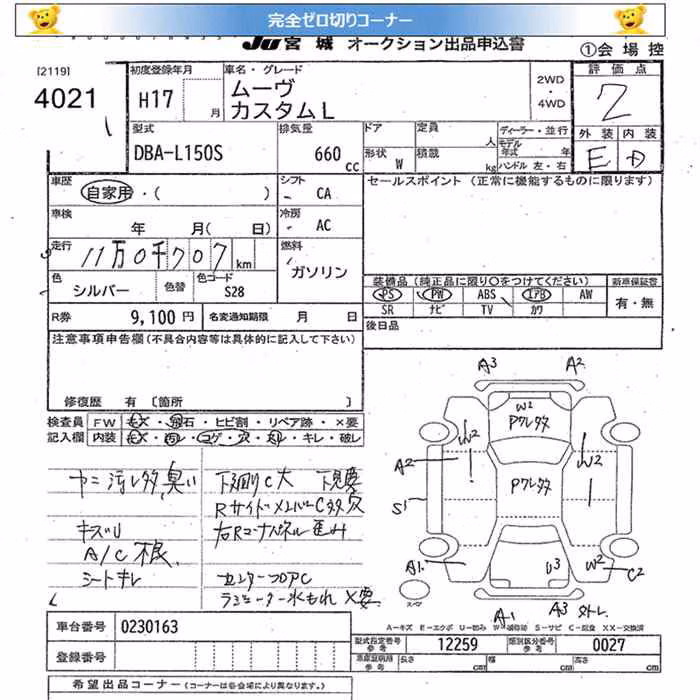 完全ゼロ切りコーナー
JU 宮城 オークション出品申込書
①会場控
[2119]
4021
初度登録年月
H17 月
車名・グレード
ムーヴ
カスタムL
2WD
・
4WD
評価点
2
外装 内装
E D
型式
DBA-L150S
排気量
660 cc
ドア
形状 W
定員 人
積載 kg
ディーラー・並行
モデル年式 年
ハンドル 左・右
車歴
自家用・( )
シフト
CA
セールスポイント (正常に機能するものに限ります)
車検
年 月( 日)
冷房
AC
走行
11万0千707 km
燃料
ガソリン
色
シルバー
色替
色コード
S28
装備品 (純正品に限り○をつけてください)
新車保証書
PS PW ABS IAB AW
有・無
SR ナビ TV カワ
R券 9,100 円
名変通知期限 月 日
後日品
注意事項申告欄 (不具合内容等は具体的に記入して下さい)
修復歴 有 [箇所 ]
検査員 FW キズ・飛石・ヒビ割・リペア跡・×要
記入欄 内装 キズ・汚レ・コゲ・穴・剥・キレ・破レ
ヤニ汚レ多, 臭い
下廻りC大 下見要
RサイドメンバーC多穴
キズU
右Rコーナーパネル歪み
A/C不良
シートキレ
センターフロアC
ラジエーター水もれ ×要
A3 A2
W2
Pクレ多
W2 W2
A2
Pクレ多
S1
A1 U3 W2 C2
スペア
A1 A3 外レ
A-キズ E-エクボ U-凹み W-補修跡 S-サビ C-腐食 XX-交換済
車台番号 0230163
型式指定番号 参考 12259
類別区分番号 参考 0027
登録番号
車庫証明用 参考
長さ cm 幅 cm 高さ cm
希望出品コーナー (コーナーは各会場により異なります。)